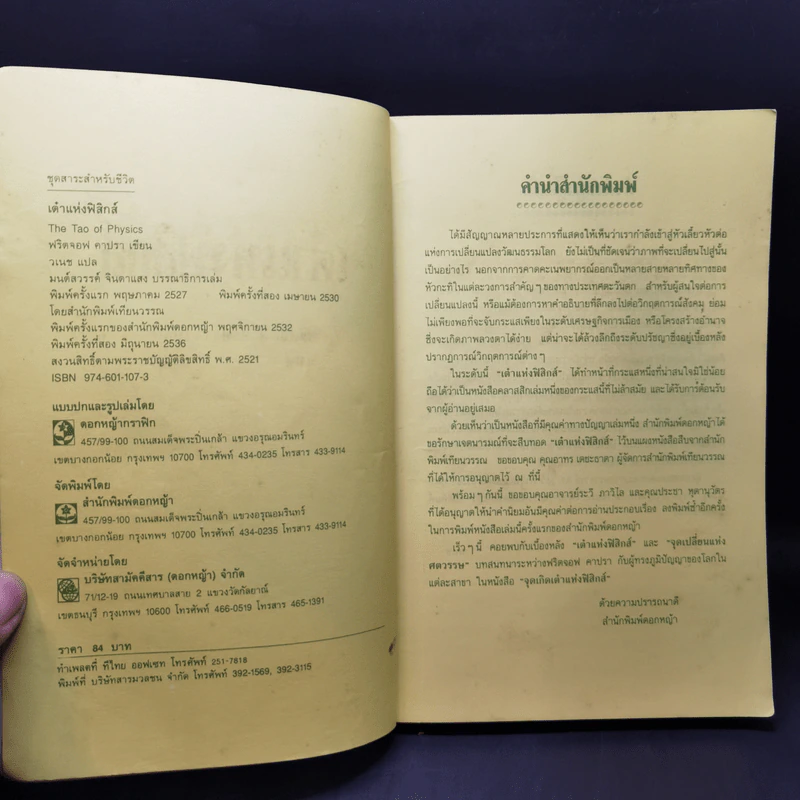 ชุดสาระสำหรับชีวิต
เต๋าแห่งฟิสิกส์
The Tao of Physics
ฟริตจอฟ คาปรา เขียน
วเนช แปล
มนต์สวรรค์ จินดาแสง บรรณาธิการเล่ม
พิมพ์ครั้งแรก พฤษภาคม 2527 พิมพ์ครั้งที่สอง เมษายน 2530
โดยสำนักพิมพ์เทียนวรรณ
พิมพ์ครั้งแรกของสำนักพิมพ์ดอกหญ้า พฤศจิกายน 2532
พิมพ์ครั้งที่สอง มิถุนายน 2536
สงวนสิทธิ์ตามพระราชบัญญัติลิขสิทธิ์ พ.ศ. 2521
ISBN 974-601-107-3
แบบปกและรูปเล่มโดย
ดอกหญ้ากราฟิก
457/99-100 ถนนสมเด็จพระปิ่นเกล้า แขวงอรุณอมรินทร์
เขตบางกอกน้อย กรุงเทพฯ 10700 โทรศัพท์ 434-0235 โทรสาร 433-9114
จัดพิมพ์โดย
สำนักพิมพ์ดอกหญ้า
457/99-100 ถนนสมเด็จพระปิ่นเกล้า แขวงอรุณอมรินทร์
เขตบางกอกน้อย กรุงเทพฯ 10700 โทรศัพท์ 434-0235 โทรสาร 433-9114
จัดจำหน่ายโดย
บริษัทสามัคคีสาร (ดอกหญ้า) จำกัด
71/12-19 ถนนเทศบาลสาย 2 แขวงวัดกัลยาณ์
เขตธนบุรี กรุงเทพฯ 10600 โทรศัพท์ 466-0519 โทรสาร 465-1391
ราคา 84 บาท
ทำเพลตที่ ทีไทย ออฟเซท โทรศัพท์ 251-7818
พิมพ์ที่ บริษัทสารมวลชน จำกัด โทรศัพท์ 392-1569, 392-3115
คำนำสำนักพิมพ์
ได้มีสัญญาณหลายประการที่แสดงให้เห็นว่าเรากำลังเข้าสู่หัวเลี้ยวหัวต่อ
แห่งการเปลี่ยนแปลงวัฒนธรรมโลก ยังไม่เป็นที่ชัดเจนว่าภาพที่จะเปลี่ยนไปสู่นั้น
เป็นอย่างไร นอกจากการคาดคะเนพยากรณ์ออกเป็นหลายสายหลายทิศทางของ
หัวกะทิในแต่ละวงการสำคัญๆ ของทางประเทศตะวันตก สำหรับผู้สนใจต่อการ
เปลี่ยนแปลงนี้ หรือแม้ต้องการหาคำอธิบายที่ลึกลงไปต่อวิกฤตการณ์สังคม ย่อม
ไม่เพียงพอที่จะจับกระแสเพียงในระดับเศรษฐกิจการเมือง หรือโครงสร้างอำนาจ
ซึ่งจะเกิดภาพลวงตาได้ง่าย แต่น่าจะได้ล้วงลึกถึงระดับปรัชญาซึ่งอยู่เบื้องหลัง
ปรากฏการณ์วิกฤตการณ์ต่างๆ
ในระดับนี้ "เต๋าแห่งฟิสิกส์" ได้ทำหน้าที่กระแสหนึ่งที่น่าสนใจมิใช่น้อย
ถือได้ว่าเป็นหนังสือคลาสสิกเล่มหนึ่งของกระแสนี้ที่ไม่ล้าสมัย และได้รับการต้อนรับ
จากผู้อ่านอยู่เสมอ
ด้วยเห็นว่าเป็นหนังสือที่มีคุณค่าทางปัญญาเล่มหนึ่ง สำนักพิมพ์ดอกหญ้าได้
ขอรักษาเจตนารมณ์ที่จะสืบทอด "เต๋าแห่งฟิสิกส์" ไว้บนแผงหนังสือสืบจากสำนัก
พิมพ์เทียนวรรณ ขอขอบคุณ คุณอาทร เตชะธาดา ผู้จัดการสำนักพิมพ์เทียนวรรณ
ที่ได้ให้การอนุญาตไว้ ณ ที่นี้
พร้อมๆ กันนี้ ขอขอบคุณอาจารย์ระวี ภาวิไล และคุณประชา หุตานุวัตร
ที่ได้อนุญาตให้นำคำนิยมอันมีคุณค่าต่อการอ่านประกอบเรื่อง ลงพิมพ์ซ้ำอีกครั้ง
ในการพิมพ์หนังสือเล่มนี้ครั้งแรกของสำนักพิมพ์ดอกหญ้า
เร็วๆ นี้ คอยพบกับเบื้องหลัง "เต๋าแห่งฟิสิกส์" และ "จุดเปลี่ยนแห่ง
ศตวรรษ" บทสนทนาระหว่างฟริตจอฟ คาปรา กับผู้ทรงภูมิปัญญาของโลกใน
แต่ละสาขา ในหนังสือ "จุดเกิดเต๋าแห่งฟิสิกส์"
ด้วยความปรารถนาดี
สำนักพิมพ์ดอกหญ้า